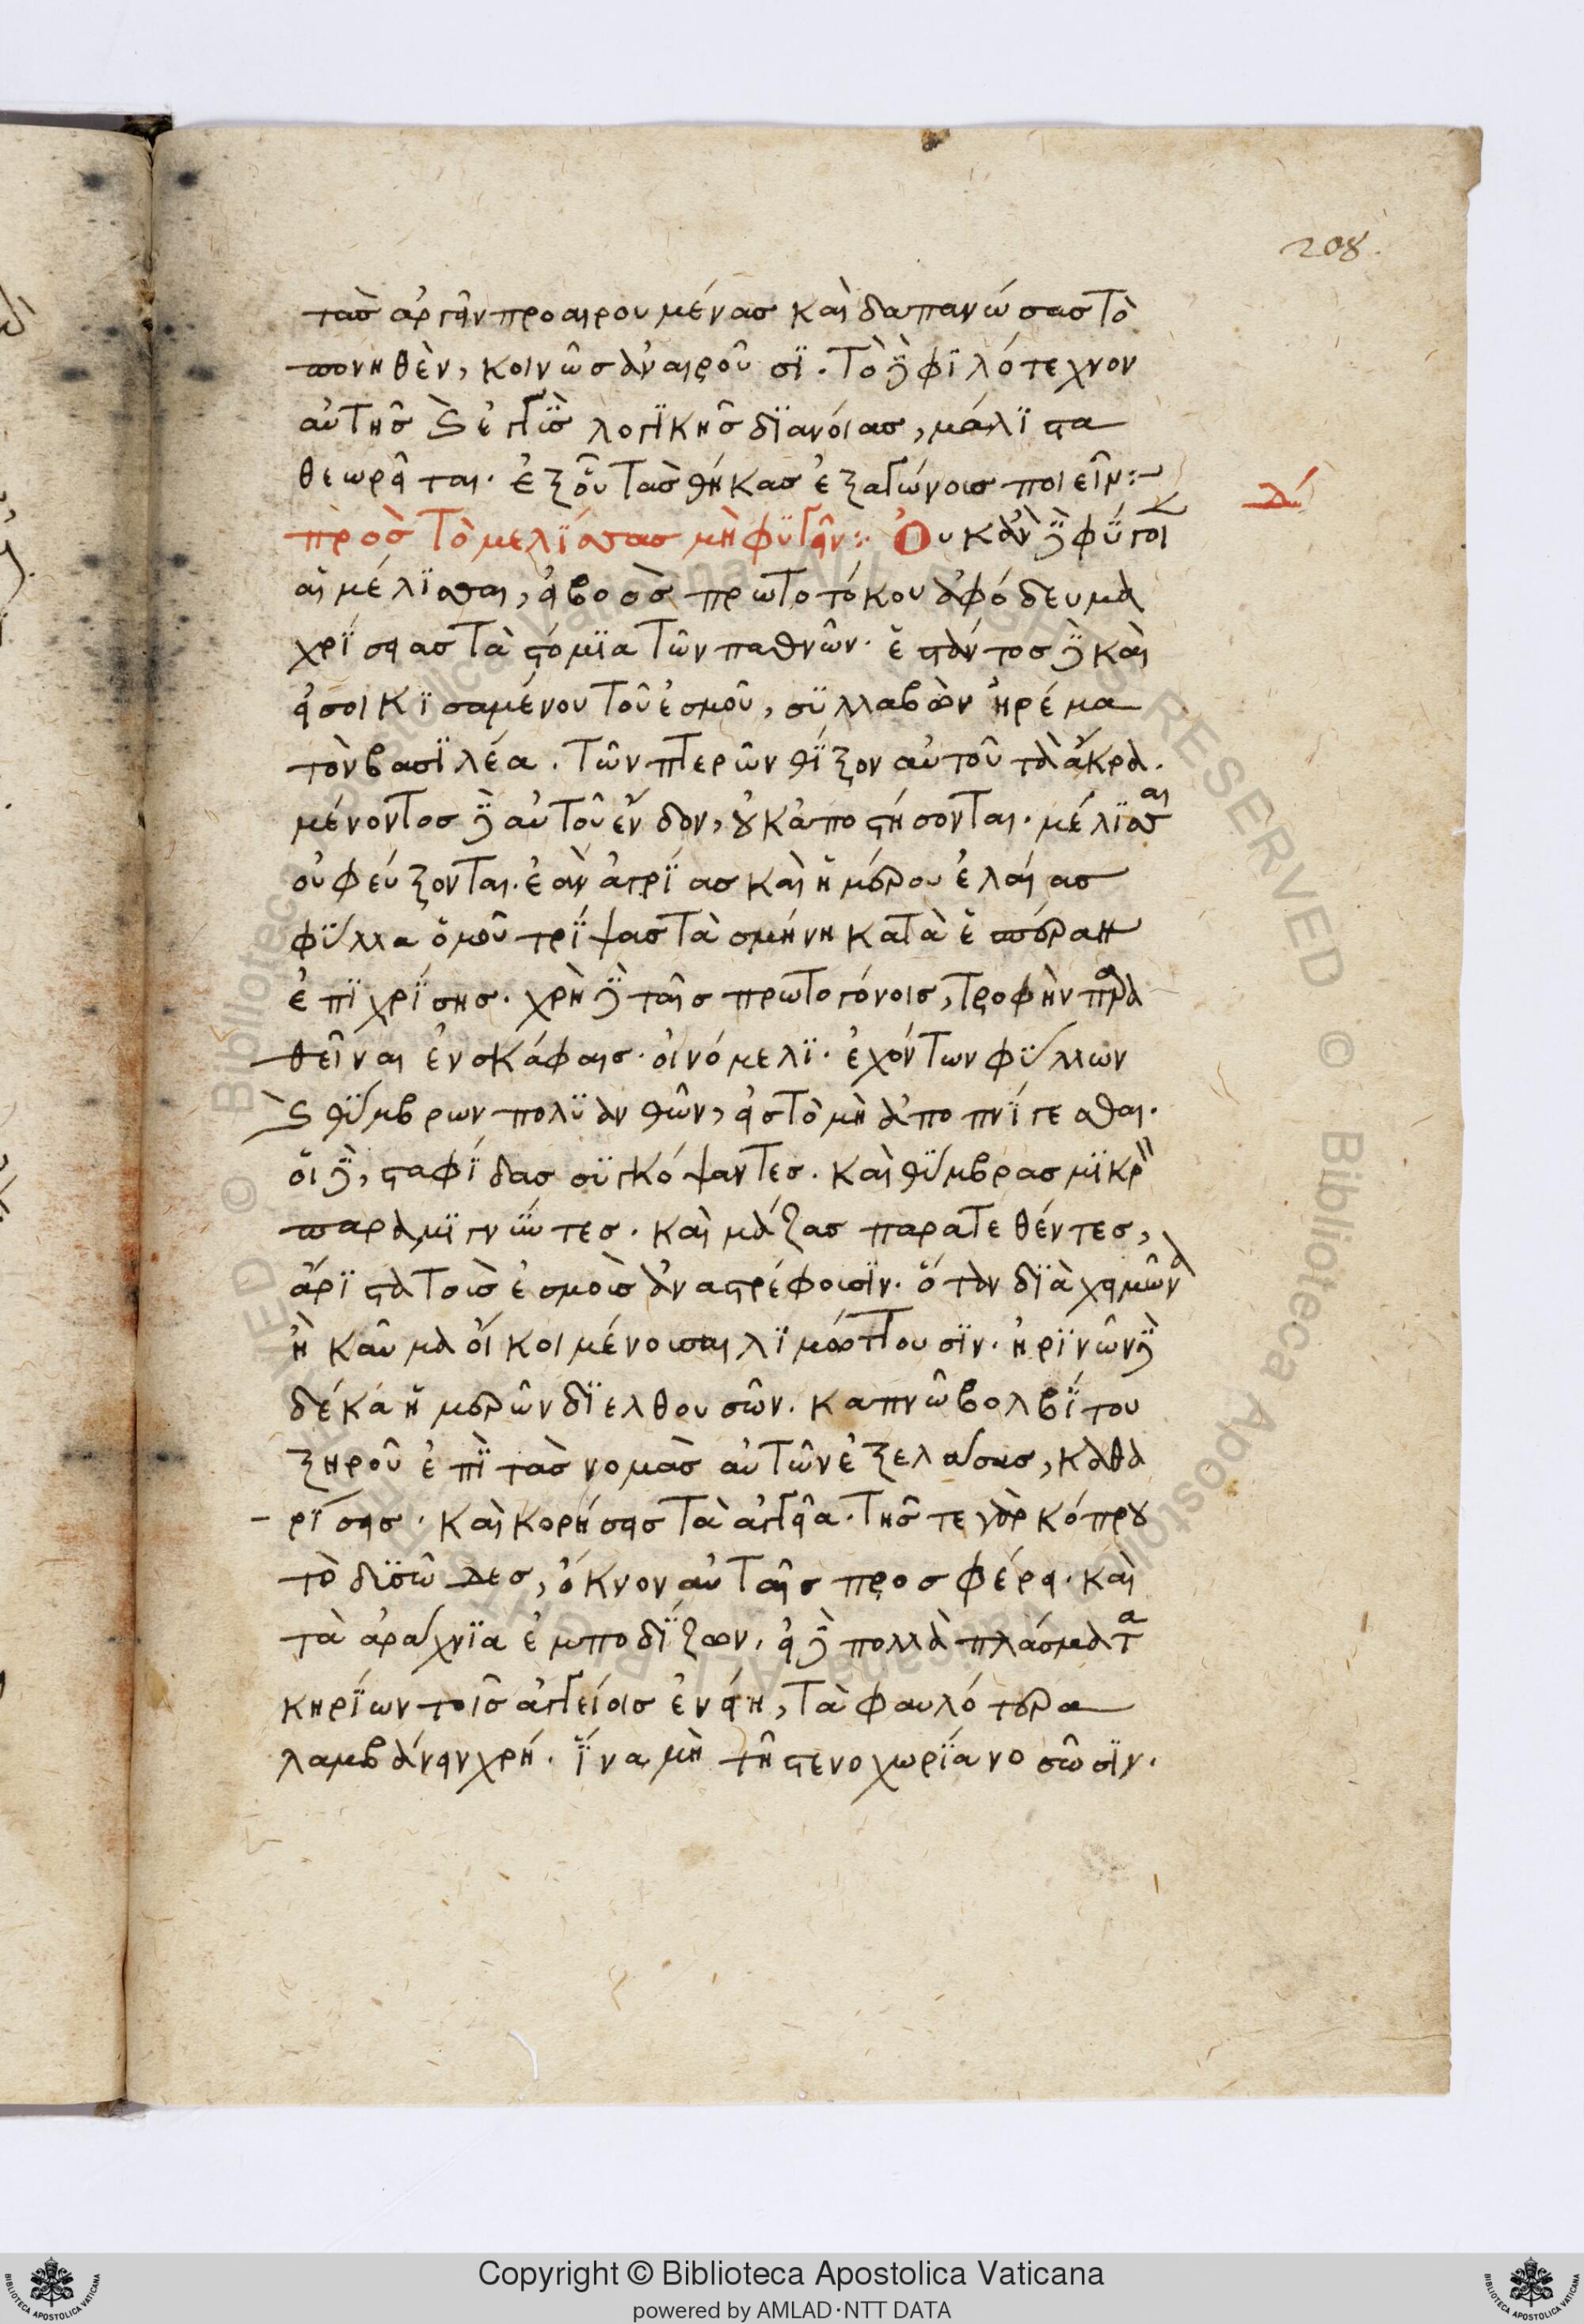 208.
τὰς ἀργεῖν προαιρουμένας καὶ δαπανώσας τὸ
πονηθὲν, κοινῶς ἀναιροῦσϊ. τὸ δὲ φϊλότεχνον
αὐτῆς καὶ ἐγγϊὺς λογϊκῆς δϊανοίας, μάλϊστα
θεωρεῖται. ἐξ οὗ τὰς θήκας ἑξαγώνοις ποιεῖν:~
δ´
πρὸς τὸ μελϊσσας μὴ φϋγεῖν:· Οὐκ ἂν δὲ φύγοι
αἱ μέλϊσσαι, εἰ βοὸς πρωτοτόκου ἀφόδευμα
χρίσεις τὰ στόμϊα τῶν παθνῶν. ἑστάντος δὲ καὶ
εἰσοικϊσαμένου τοῦ ἑσμοῦ, σϋλλαβὼν ἠρέμα
τὸν βασϊλέα. τῶν πτερῶν θϊξον αὐτοῦ τὰ ἄκρα.
μένοντος δὲ αὐτοῦ ἔνδον, οὐκ ἀποστήσονται. μέλϊσσαι
οὐ φεύξονται. ἐὰν ἀγρϊας καὶ ἡμέρου ἐλαίας
φϋλλα ὁμοῦ τρϊψας τὰ σμήνη κατὰ ἑσπέραν
ἐπϊχρϊσης. χρὴ δὲ ταῖς πρωτογόνοις, τροφὴν παρα
θεῖναι ἐν σκάφαις. οἰνόμελϊ. ἐχόντων φϋλλων
καὶ θϋμβρων πολϋανθῶν, εἰς τὸ μὴ ἀποπνϊγεσθαι.
οἱ δὲ, σταφϊδας σϋγκόψαντες. καὶ θϋμβρας μϊκρὸν
παραμϊγνϋόντες. καὶ μάζας παρατεθέντες,
ἄρϊστα τοὺς ἑσμοὺς ἀναστρέφουσϊν. ὅταν δϊὰ χειμῶνα
ἢ καῦμα οἴκοι μένουσαι λϊμώττουσϊν. ἠρϊνῶν δὲ
δέκα ἡμερῶν δϊελθουσῶν. καπνῷ βολβϊτου
ξηροῦ ἐπὶ τὰς νομὰς αὐτῶν ἐξελάσας, καθα
ρϊσεις. καὶ κορήσεις τὰ ἀγγεῖα. τῆς τε γὰρ κόπρου
τὸ δϋσῶδες, ὄκνον αὐταῖς προσφέρει. καὶ
τὰ ἀράχνϊα ἐμποδϊζων. εἰ δὲ πολλὰ πλάσματα
κηρϊων τοῖς ἀγγείοις ἐνείη, τὰ φαυλότερα
λαμβάνειν χρή. ἵνα μὴ τῇ στενοχωρϊα νοσῶσϊν.
Copyright © Biblioteca Apostolica Vaticana
powered by AMLAD·NTT DATA